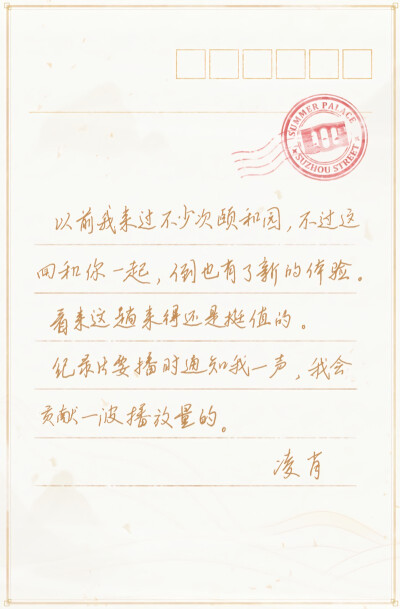 SUMMER PALACE
SUZHOU STREET
以前我来过不少次颐和园，不过这
回和你一起，倒也有了新的体验。
看来这趟来得还是挺值的。
纪录片要播时通知我一声，我会
贡献一波播放量的。
凌肖